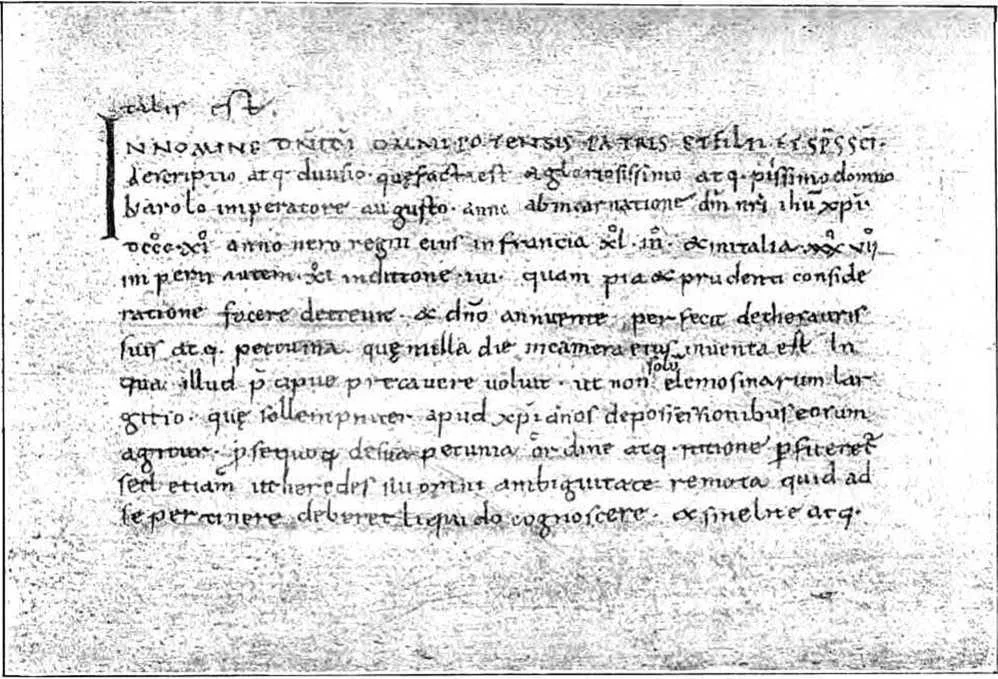 talis est.
IN NOMINE DNI DI OMNIPOTENSIS PATRIS ET FILII ET SPS SCI.
descriptio atq. diuisio. quę facta est a gloriosissimo atq. piissimo domno
karolo imperatore augusto. anno ab incarnatione dni nri ihu xpi.
DCCC.XI. anno uero regni eius in francia XL.III. & in italia. XXXVII.
imperii autem. XI. indictione. IIII. quam pia & prudenti conside
ratione facere decreuit. & dno annuente perfecit de thesauris
suis atq. pecunia. quę in illa die in camera eius inuenta est. In
qua illud pcipue precauere uoluit. ut non solū elemosinarum lar
gitio. quę sollempniter apud xpianos de possessionibus eorum
agitur. p se quoq de sua pecunia ordine atq. ratione pficeret
sed etiam ut heredes sui omni ambiguitate remota quid ad
se pertinere deberet liquido cognoscere. & sine lite atq.